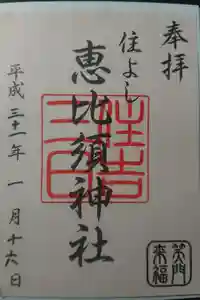 奉拝
住よし
恵比須神社
平成三十一年一月十六日
笑門来福